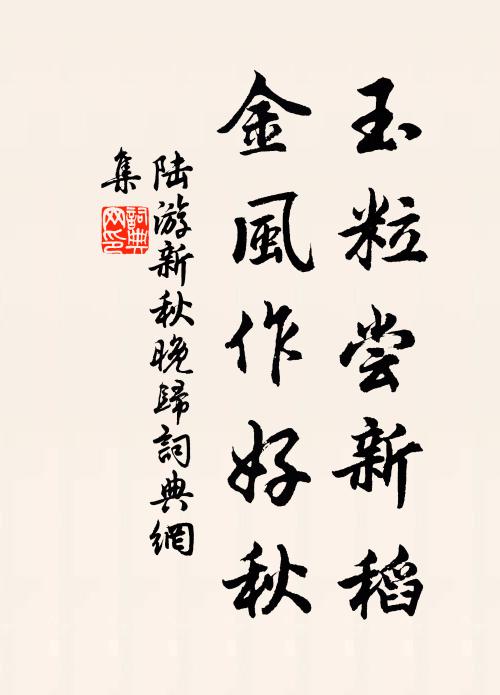 玉粒尝新稻
金風作好秋
陆游新秋晚歸詞典網
集
詞典网印